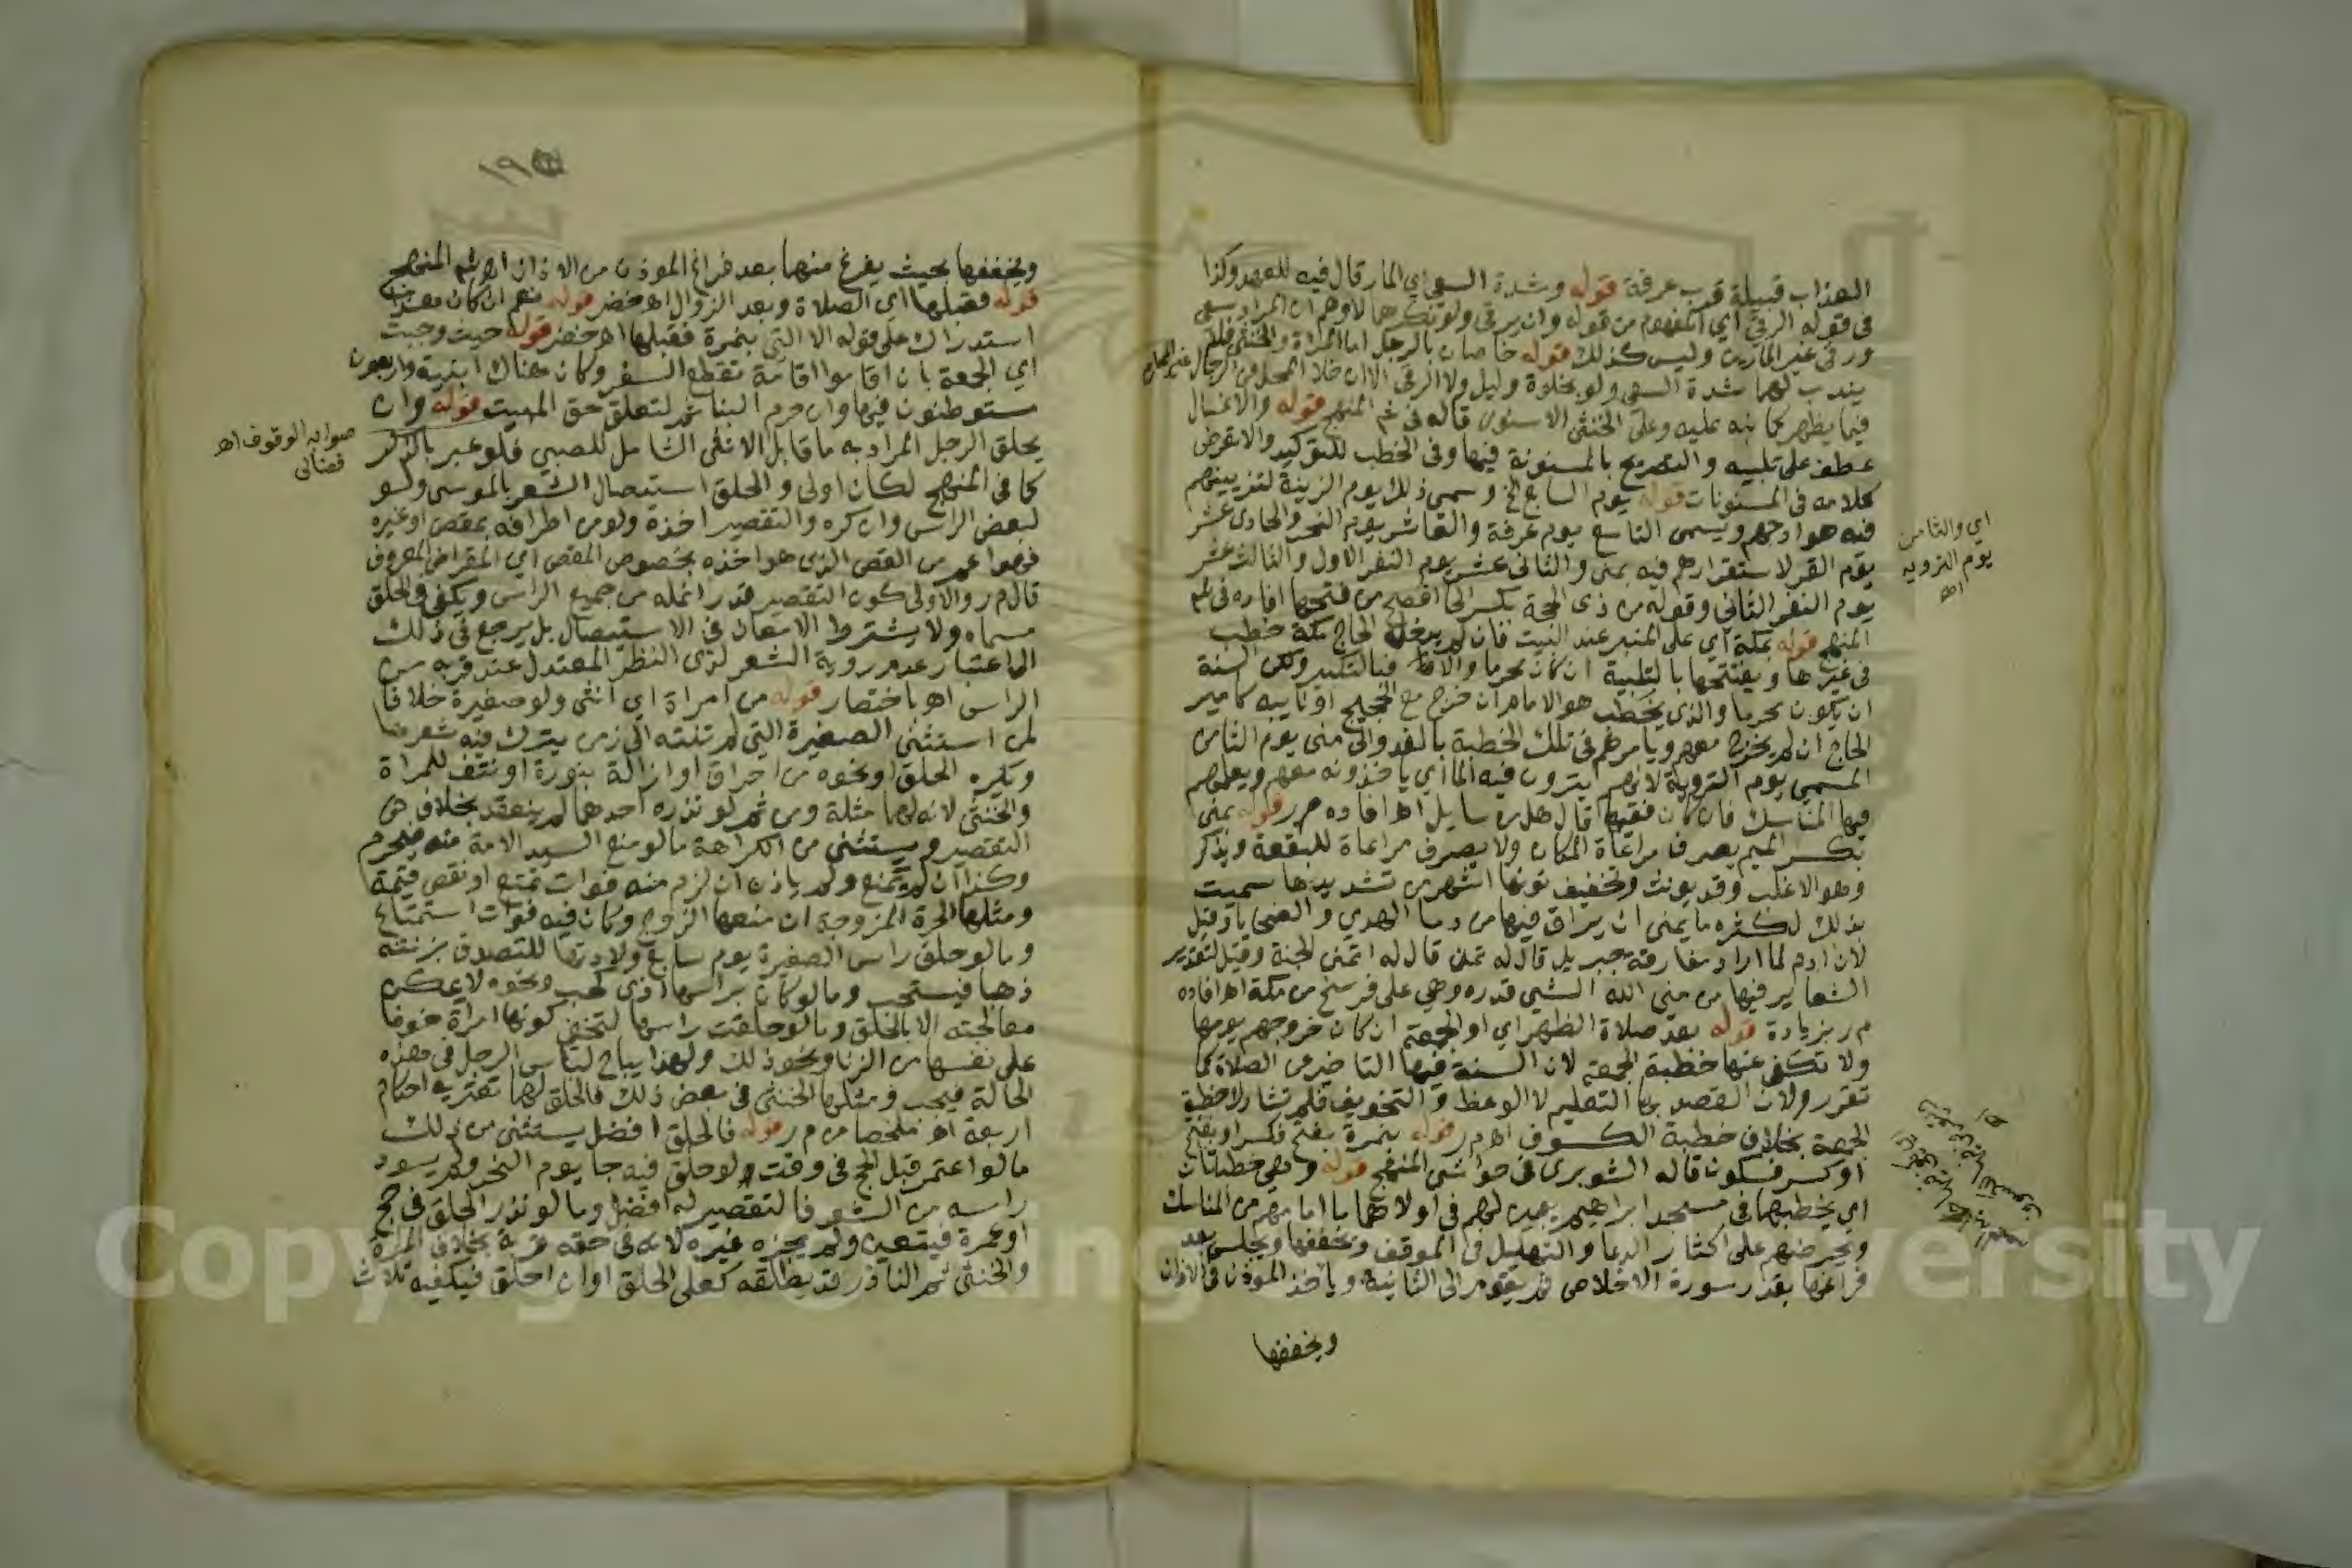 العذاب قبيلة قرب عرفة قوله وشدة السعي اي المار قال فيه للعهد وكذا
في قوله الرقي اي المفهوم من قوله وان يرقى ولو نكرهما لاوهم ان المراد سعي
ور في غير المارين وليس كذلك قوله خاصان بالرجل اما المراة والخنثى فلا
يندب لهما شدة السعي ولو بخلوة وليل ولا الرقي الا ان خلا المحل من الرجال غير المحارم
فيما يظهر كما نبه عليه وعلى الخنثى الاسنوي قاله في شم المنهج قوله والاغسال
عطف على تلبيه والتصريح بالمسنونة فيها وفي الخطب للتوكيد والا فغرض
كلامه في المسنونات قوله يوم السابع الخ وسمي ذلك يوم الزينة لتزيينهم
فيه هوادجهم ويسمى التاسع يوم عرفة والعاشر يوم النحر والحادي عشر
يوم القر لاستقرارهم فيه بمنى والثاني عشر يوم النفر الاول والثالث عشر
يوم النفر الثاني وقوله من ذي الحجة بكسر الحا افصح من فتحها افاده في شم
المنهج قوله بمكة اي على المنبر عند البيت فان لم يدخل الحاج مكة خطب
في غيرها ويفتتحها بالتلبية ان كان محرما والا فبالتكبير ولكن السنة
ان يكون محرما والذي يخطب هو الامام ان خرج مع الحجيج او نايبه كامير
الحاج ان لم يخرج معهم ويامرهم في تلك الخطبة بالغدو الى منى يوم الثامن
المسمى يوم التروية لانهم يتروون فيه الماء اي ياخذونه معهم ويعلمهم
فيها المناسك فان كان فقيها قال هل من سايل اهـ افاده م ر قوله بمنى
بكسر الميم يصرف مراعاة للمكان ولا يصرف مراعاة للبقعة ويذكر
وهو الاغلب وقد يونث وتخفيف نونها اشهر من تشديدها سميت
بذلك لكثرة ما يمنى ان يراق فيها من دما الهدي والضحايا وقيل
لان ادم لما اراد مفارقة جبريل قال له تمن قال له اتمنى الجنة وقيل لتقدير
الشعاير فيها من منى الله الشي قدره وهي على فرسخ من مكة اهـ افاده
م ر بزيادة قوله بعد صلاة الظهر اي او الجمعة ان كان خروجهم يومها
ولا تكفي عنها خطبة الجمعة لان السنة فيها التاخير عن الصلاة كما
تقرر ولان القصد بها التعليم لا الوعظ والتخويف فلم تشارك خطبة
الجمعة بخلاف خطبة الكسوف اهـ م ر قوله بنمرة بفتح فكسر او بفتح
او كسر فسكون قاله الشوبري في حواشي المنهج قوله وهي خطبتان
اي يخطبهما في مسجد ابراهيم يبين لهم في اولاهما ما امامهم من المناسك
ويحرضهم على اكثار الدعا والتهليل في الموقف ويخففها ويجلس بعد
فراغها بقدر سورة الاخلاص ثم يقوم الى الثانية وياخذ الموذن في الاذان
ويخففها
اي والثامن
يوم التروية
اهـ
١٩
ويخففها بحيث يفرغ منها بعد فراغ الموذن من الاذان اهـ شم المنهج
قوله فقبلها اي الصلاة وبعد الزوال اهـ خضر قوله نعم ان كان معد
استدراك على قوله الا التي بنمرة فقبلها اهـ خضر قوله حيث وجبت
اي الجمعة بان اقاموا اقامة تقطع السفر وكان هناك ابنية واربعون
مستوطنون فيها وان حرم البنا ثم لتعلق حق المبيت قوله وان
يحلق الرجل المراد به ما قابل الانثى الشامل للصبي فلو عبر بالذكر
كما في المنهج لكان اولى والحلق استيصال الشعر بالموسى ولو
لبعض الراس وان كره والتقصير اخذه ولو من اطرافه بمقص او غيره
فهو اعم من القص الذي هو اخذه بخصوص المقص اي المقراض المعروف
قال م ر والاولى كون التقصير قدر انمله من جميع الراس ويكفي في الحلق
مسماه ولا يشترط الامعان في الاستيصال بل يرجع في ذلك
الى اعتبار عدم روية الشعر لذي النظر المعتدل عند قربه من
الراس اهـ باختصار قوله من امراة اي انثى ولو صغيرة خلافا
لمن استثنى الصغيرة التي لم تنته الى زمن يترك فيه شعرها
ويكره الحلق او نحوه من احراق او ازالة بنورة او نتف للمراة
والخنثى لانه لهما مثلة ومن ثم لو نذره احدهما لم ينعقد بخلاف
التقصير ويستثنى من الكراهة ما لو منع السيد الامة منه فيحرم
وكذا ان لم يمنع ولم ياذن ان لزم منه فوات تمتع او نقص قيمة
ومثلها الحرة المزوجة ان منعها الزوج وكان فيه فوات استمتاع
وما لو حلق راس الصغيرة يوم سابع ولادتها للتصدق بزنته
ذهبا فيستحب وما لو كان براسها اذى كحب ونحوه لا يمكن
معالجته الا بالحلق وما لو حلقت راسها لتخفي كونها امراة خوفا
على نفسها من الزنا ونحو ذلك ولهذا يباح لباس الرجل في هذه
الحالة فيجب ومثلها الخنثى في بعض ذلك فالحلق لهما تعتريه احكام
اربعة اهـ ملخصا من م ر قوله فالحلق افضل يستثنى من ذلك
ما لو اعتمر قبل الحج في وقت لو حلق فيه جا يوم النحر ولم يسود
راسه من الشعر فالتقصير له افضل وما لو نذر الحلق في حج
او عمرة فيتعين ولم يجزه غيره لانه في حقه قربة بخلاف المراة
والخنثى ثم الناذر قد يطلقه كعلي الحلق او ان احلق فيكفيه ثلاث
صوابه الوقوف اهـ
فضالي